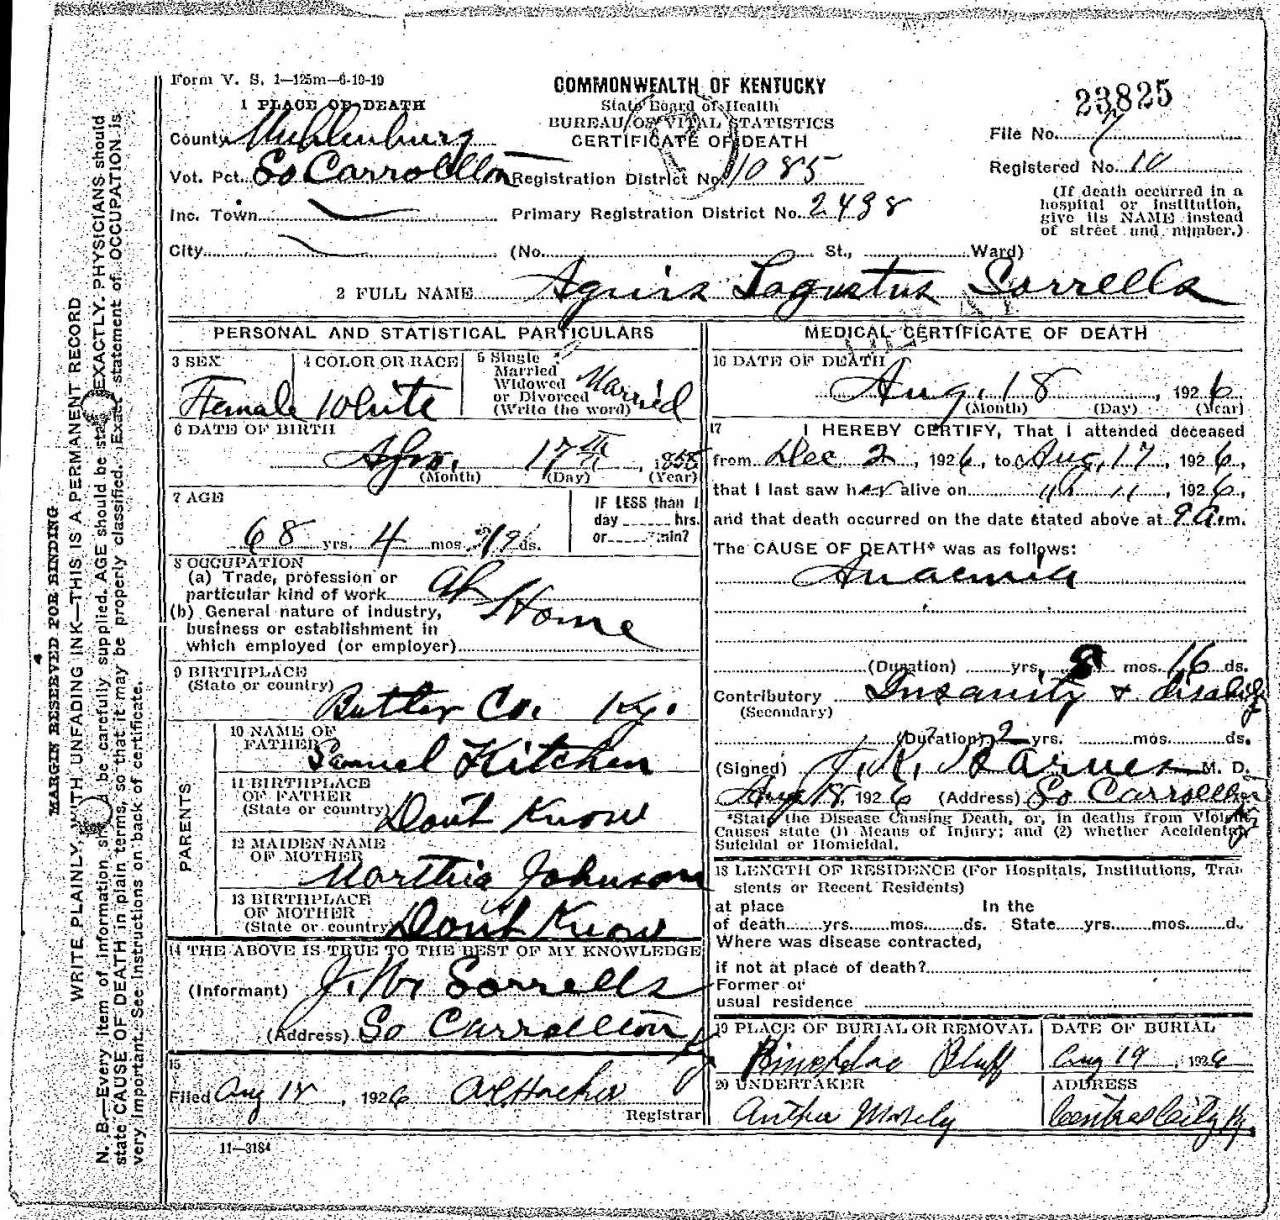 Form V. S. 1—125m—6-10-19
COMMONWEALTH OF KENTUCKY
State Board of Health
BUREAU OF VITAL STATISTICS
CERTIFICATE OF DEATH
23825
File No. 7
Registered No. 10
(If death occurred in a hospital or institution, give its NAME instead of street and number.)
1 PLACE OF DEATH
County Muhlenburg
Vot. Pct. So Carrollton Registration District No. 1085
Inc. Town Primary Registration District No. 2438
City (No. St., Ward)
2 FULL NAME Sorrells
PERSONAL AND STATISTICAL PARTICULARS
3 SEX
Female
4 COLOR OR RACE
White
5 Single
Married
Widowed
or Divorced
(Write the word)
Married
6 DATE OF BIRTH
17th
(Month) (Day) (Year)
7 AGE
68 yrs. 4 mos. ds.
IF LESS than 1
day hrs.
or min?
8 OCCUPATION
(a) Trade, profession or
particular kind of work at Home
(b) General nature of industry,
business or establishment in
which employed (or employer)
9 BIRTHPLACE
(State or country)
Butler Co. Ky.
PARENTS
10 NAME OF
FATHER
Samuel Kitchen
11 BIRTHPLACE
OF FATHER
(State or country) Dont Know
12 MAIDEN NAME
OF MOTHER
Marthia Johnson
13 BIRTHPLACE
OF MOTHER
(State or country) Dont Know
14 THE ABOVE IS TRUE TO THE BEST OF MY KNOWLEDGE
(Informant) J. W. Sorrells
(Address) So Carrollton Ky
15
Filed Aug 18, 1926
Registrar
11—3184
MEDICAL CERTIFICATE OF DEATH
16 DATE OF DEATH
Aug. 18, 1926
(Month) (Day) (Year)
17 I HEREBY CERTIFY, That I attended deceased
from Dec 2, 1926, to Aug, 17, 1926,
that I last saw her alive on " 11, 1926,
and that death occurred on the date stated above at 9 a.m.
The CAUSE OF DEATH* was as follows:
Anaemia
(Duration) yrs. 8 mos. 16 ds.
Contributory Insanity +
(Secondary)
(Duration) 2 yrs. mos. ds.
(Signed) J. K. Barnes M. D.
Aug 18, 1926 (Address) So Carrollton Ky
*State the Disease Causing Death, or, in deaths from Violent
Causes state (1) Means of Injury; and (2) whether Accidental,
Suicidal or Homicidal.
18 LENGTH OF RESIDENCE (For Hospitals, Institutions, Tran
sients or Recent Residents)
at place In the
of death yrs. mos. ds. State yrs. mos. d.
Where was disease contracted,
if not at place of death?
Former or
usual residence
19 PLACE OF BURIAL OR REMOVAL
Bluff
DATE OF BURIAL
Aug 19, 1926
20 UNDERTAKER
ADDRESS
Central City Ky.
MARGIN RESERVED FOR BINDING
WRITE PLAINLY, WITH UNFADING INK—THIS IS A PERMANENT RECORD
N. B.—Every item of information should be carefully supplied. AGE should be stated EXACTLY. PHYSICIANS should
state CAUSE OF DEATH in plain terms, so that it may be properly classified. Exact statement of OCCUPATION is
very important. See instructions on back of certificate.